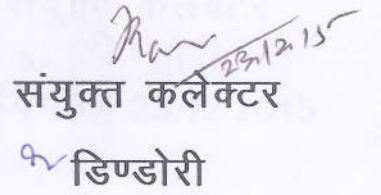 23/12/15
संयुक्त कलेक्टर
डिण्डोरी